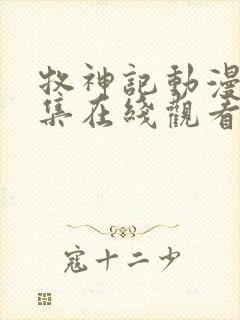 牧神記動漫
集在綫觀看
寇十二少